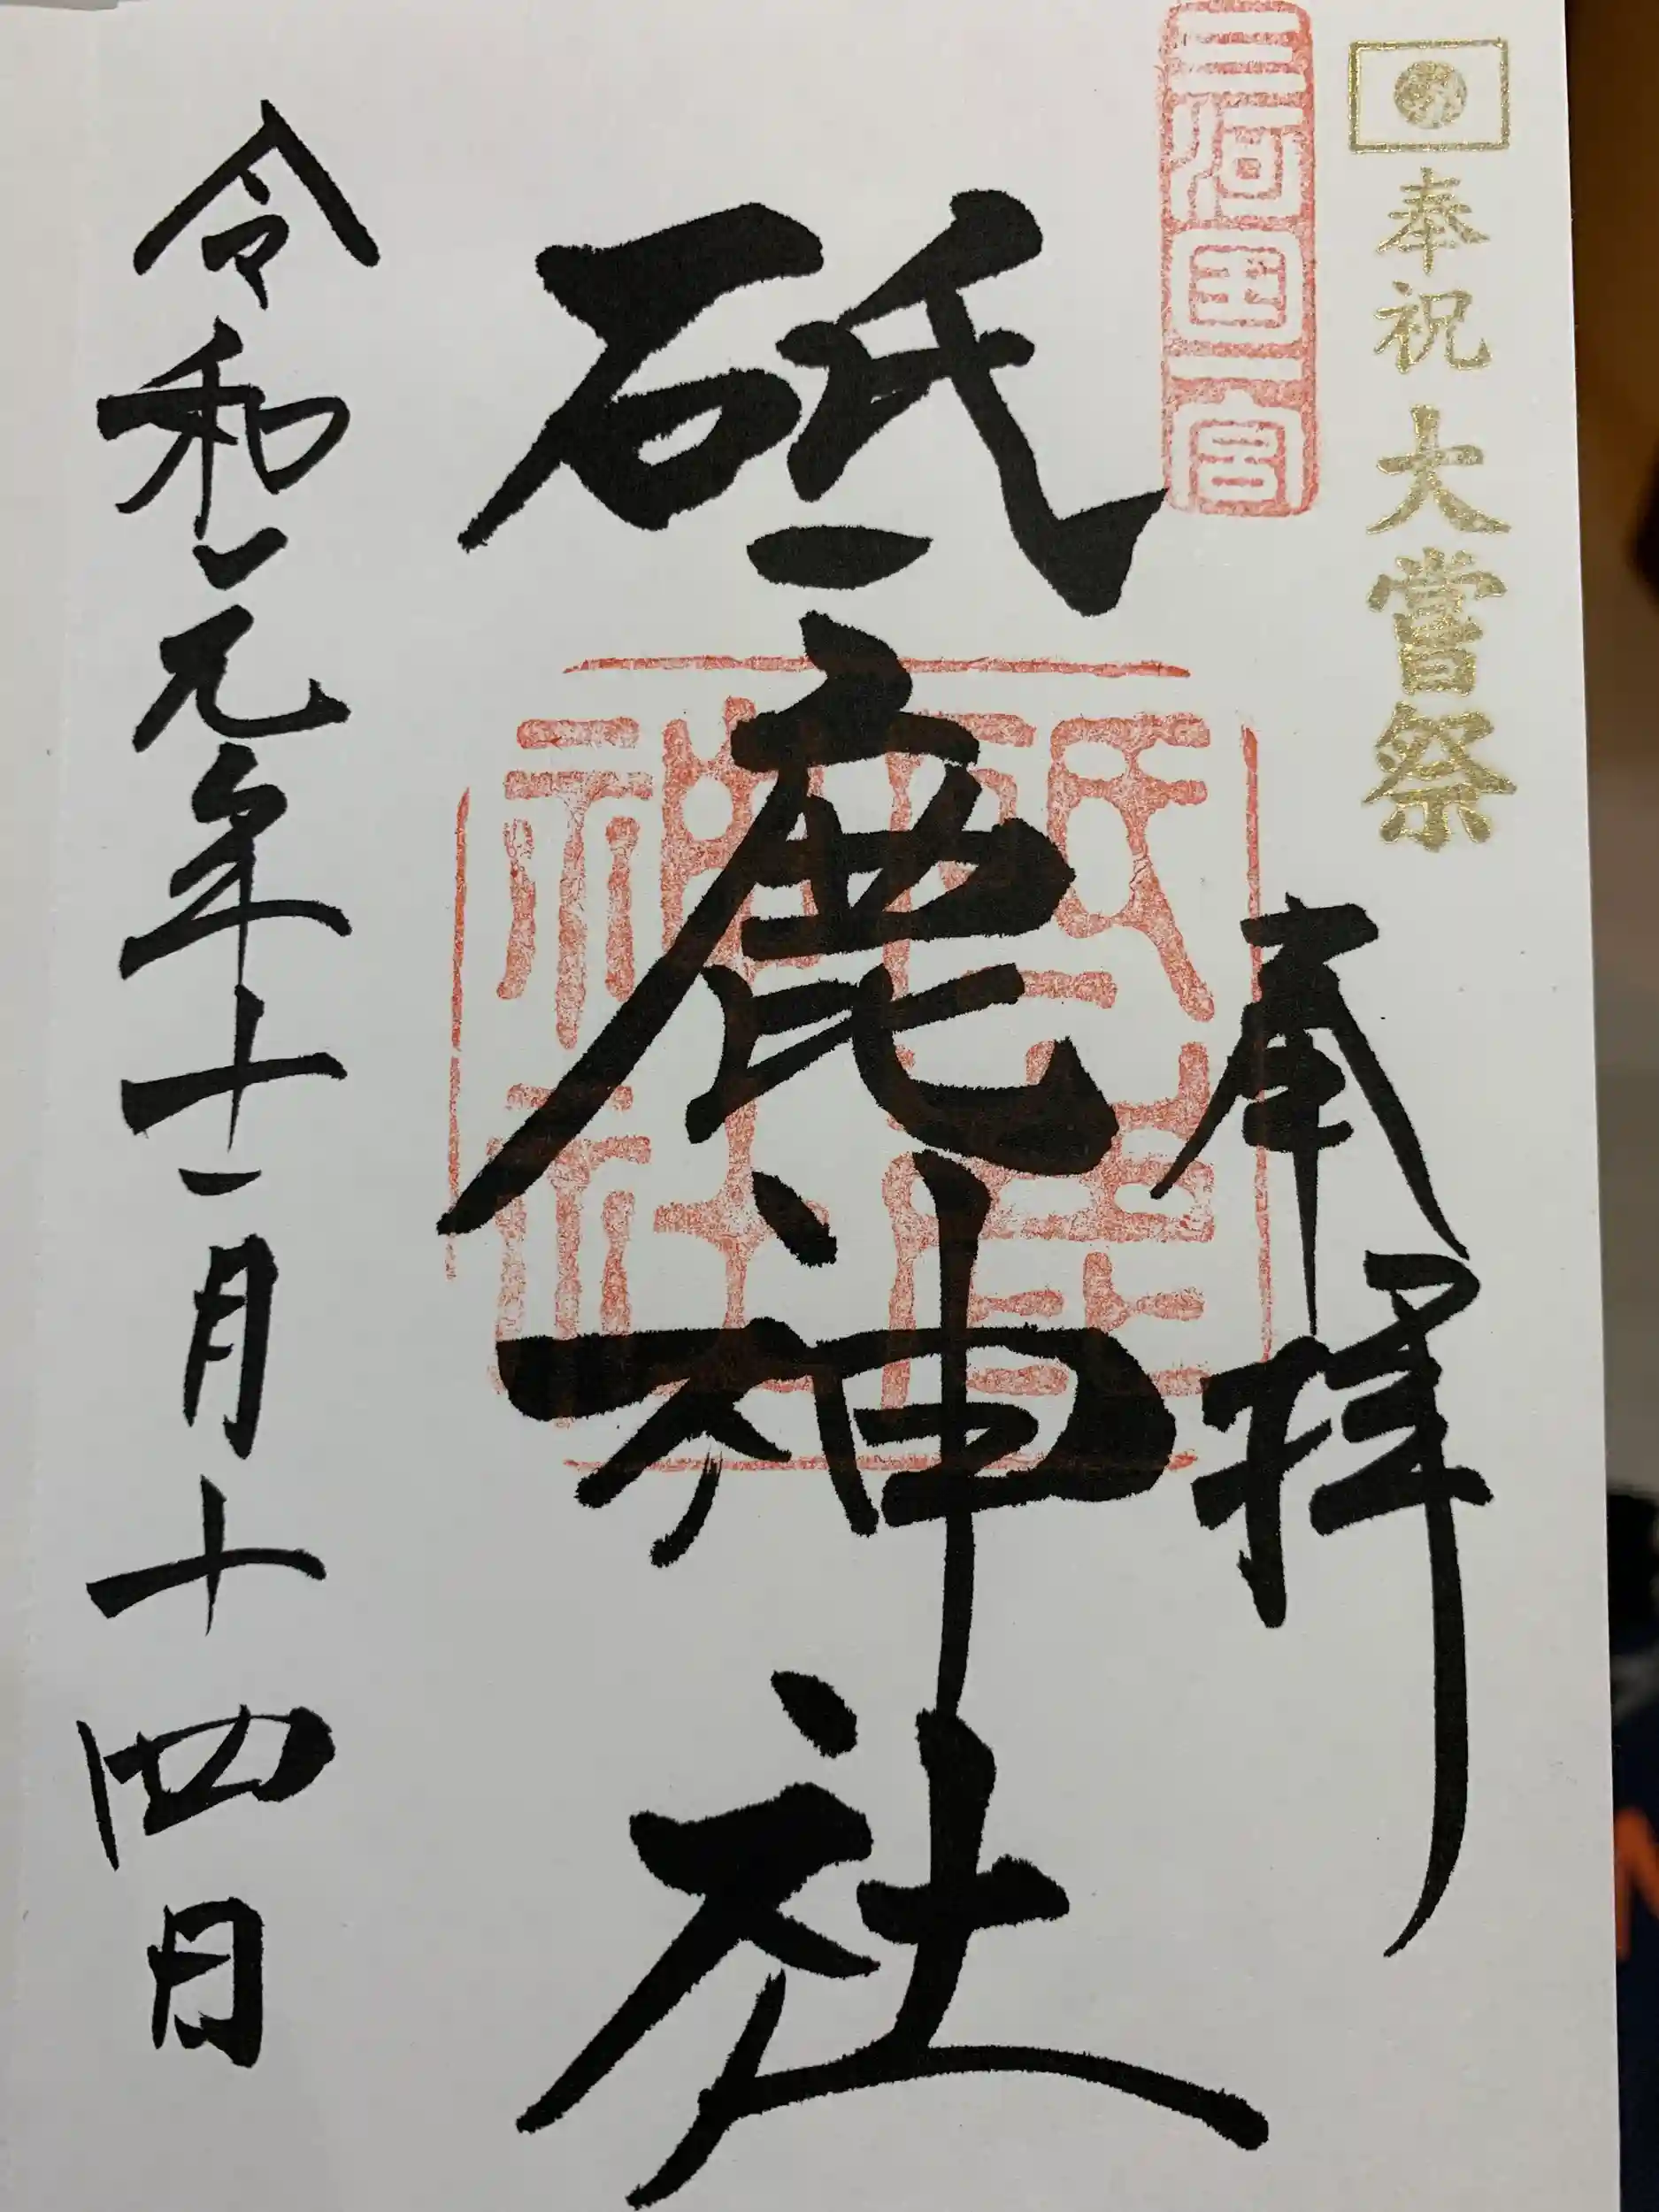 奉祝 大嘗祭
奉拝
三河国一宮
砥鹿神社
砥鹿神社
令和元年十一月十四日